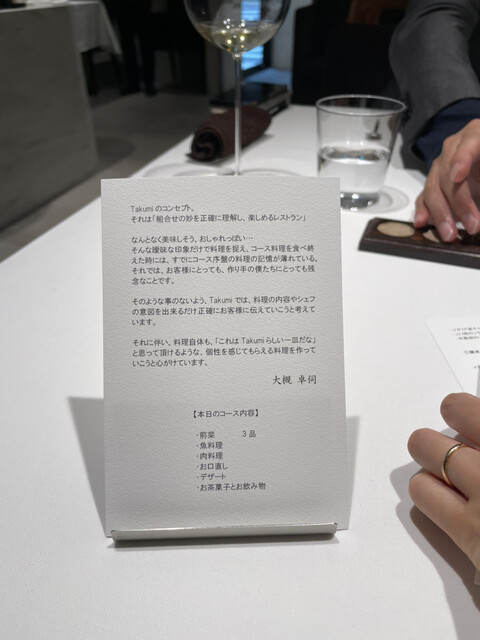 Takumi のコンセプト。
それは「組合せの妙を正確に理解し、楽しめるレストラン」
なんとなく美味しそう、おしゃれっぽい…
そんな曖昧な印象だけで料理を捉え、コース料理を食べ終
えた時には、すでにコース序盤の料理の記憶が薄れている。
それでは、お客様にとっても、作り手の僕たちにとっても残
念なことです。
そのような事のないよう、Takumi では、料理の内容やシェフ
の意図を出来るだけ正確にお客様に伝えていこうと考えて
います。
それに伴い、料理自体も、「これは Takumi らしい一皿だな」
と思って頂けるような、個性を感じてもらえる料理を作って
いこうと心がけています。
大槻 卓伺
【本日のコース内容】
・前菜 3 品
・魚料理
・肉料理
・お口直し
・デザート
・お茶菓子とお飲み物